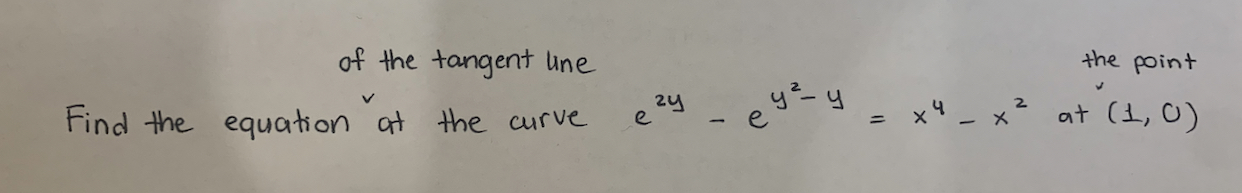 of the tangent line the point
Find the equation ˅ at the curve e^{2y} - e^{y^2-y} = x^4 - x^2 at ˅ (1, 0)